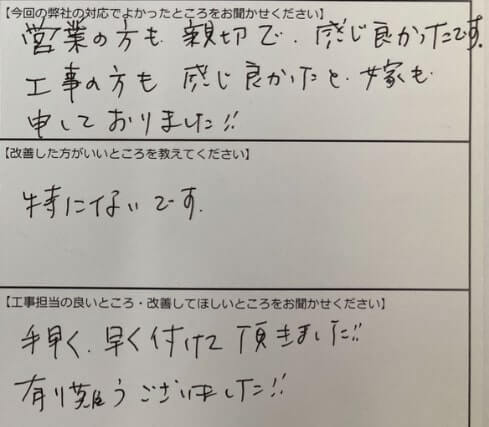 【今回の弊社の対応でよかったところをお聞かせください】
営業の方も、親切で、感じ良かったです。
工事の方も 感じ良かったと、嫁も
申しておりました!!
【改善した方がいいところを教えてください】
特にないです。
【工事担当の良いところ・改善してほしいところをお聞かせください】
手早く、早く付けて頂きました!!
有り難うございました!!